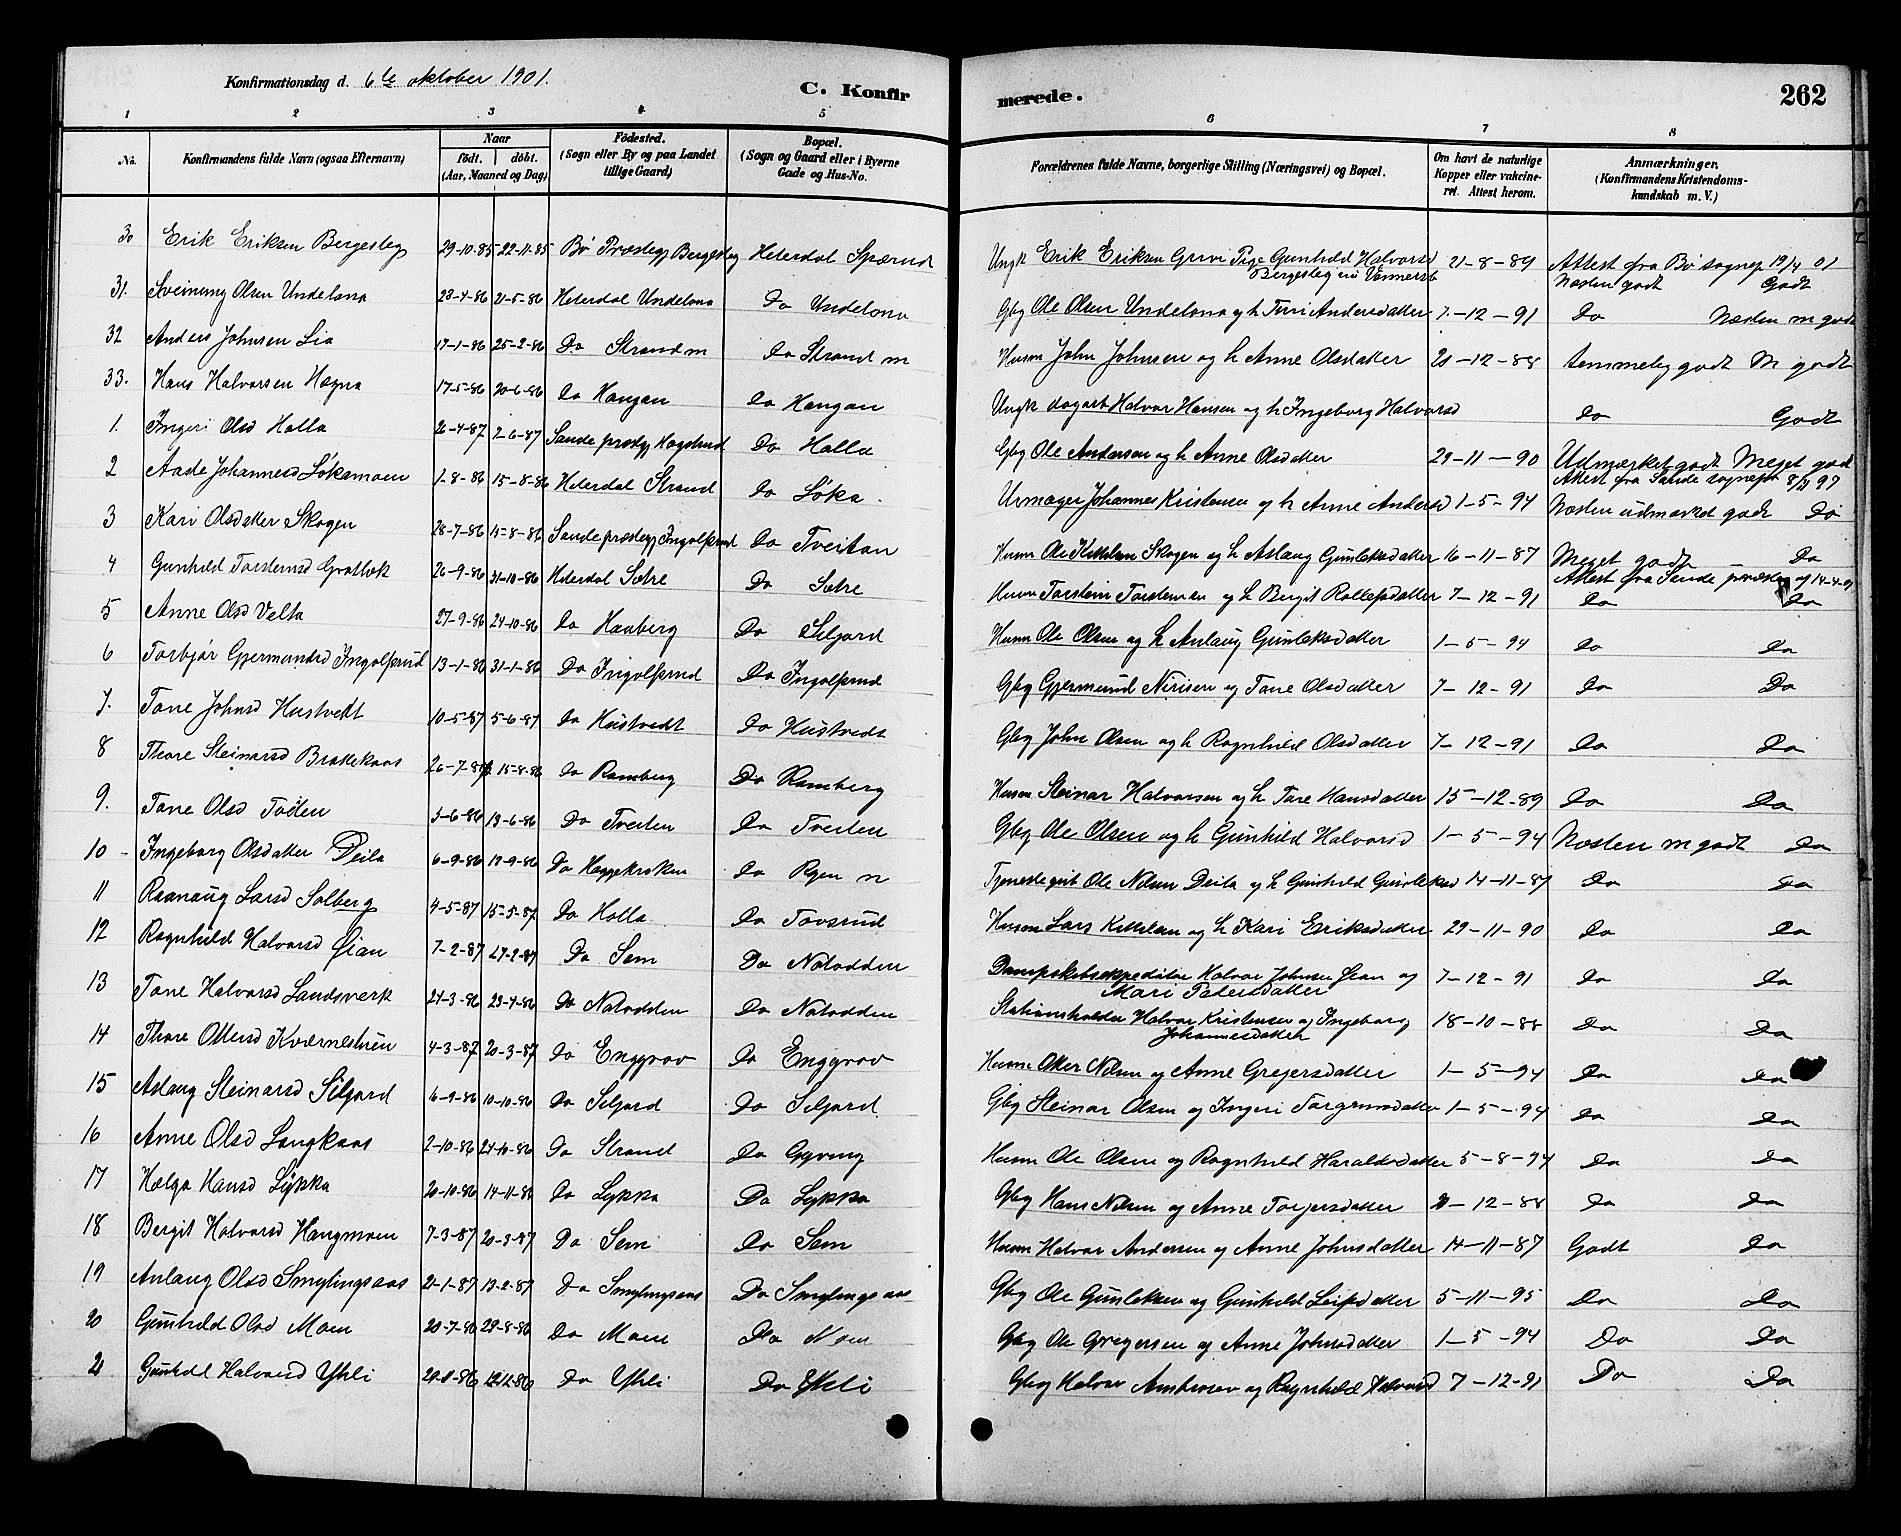 Konfirmationsdag d. 6te oktober 1901.
C. Konfirmerede.
262
1 2 3 4 5 6 7 8
No. Konfirmandens fulde Navn (ogsaa Efternavn) Naar født. døbt. (Aar, Maaned og Dag) Fødested. (Sogn eller By og paa Landet tillige Gaard) Bopæl. (Sogn og Gaard eller i Byerne Gade og Hus-No. Forældrenes fulde Navne, borgerlige Stilling (Næringsvei) og Bopæl. Om havt de naturlige Kopper eller vakcineret. Attest herom. Anmærkninger. (Konfirmandens Kristendomskundskab m. V.)
30 Erik Eriksen Bergesleg 29-10-85 22-11-85 Bø Præstegj Bergesleg Heterdal Ungk Erik Eriksen Grivi Pige Gunhild Halvorsd 21-8-89 Attest fra Bø sognep 19/4 01
Bergesleg Næsten godt Godt
31. Sveinung Olsen Undelona 28-4-86 21-5-86 Heterdal Undelona Do Undelona Gbg Ole Olsen Undelona og h Turi Andersdatter 7-12-91 Do Næsten m godt
32 Anders Johnsen Lia 17-1-86 25-2-86 Do Strand m Do Strand m Husm John Johnsen og h Anne Olsdatter 20-12-88 temmelig godt M godt
33. Hans Halvorsen Hægna 17-5-86 20-6-86 Do Haugan Do Haugan Ungk dagarb Halvor Hansen og h Ingeborg Halvorsd Do Godt
1. Ingeri Olsd Holla 26-4-87 2-6-87 Sande præstgj Do Holla Gbg Ole Andersen og h Anne Olsdatter 29-11-90 Udmærket godt Meget god
Attest fra Sande sognepr 97
2 Aaste Johannesd Løkamoen 1-8-86 15-8-86 Heterdal Strand Do Løka Urmager Johannes Kristensen og h Anne Andersd 1-5-94 Næsten udmærket godt Do
3 Kari Olsdatter Skogen 28-7-86 15-8-86 Sande præstegj Ingolfsrud Do Tveitan Husm Ole Kittilsen Skogen og h Aslaug Gunleksdatter 16-11-87 Meget godt Do
Attest fra Sande
4 Gunhild Torsteinsd Grotbæk 26-9-86 31-10-86 Heterdal Sætre Do Sætre Husm Torstein Torsteinsen og h Bergit Rollefsdatter 7-12-91 Do Do
5 Anne Olsd Velta 27-9-86 24-10-86 Do Hauberg Do Seljord Husm Ole Olsen og h Anlaug Gunleksdatter 1-5-94 Do Do
6 Torbjør Gjermundsd Ingolfsrud 13-1-86 31-1-86 Do Ingolfsrud Do Ingolfsrud Gbg Gjermund Nirisen og Tone Olsdatter 7-12-91 Do Do
7. Tone Johnsd Hustvedt 10-5-87 5-6-87 Do Hustvedt Do Hustvedt Gbg John Olsen og h Ragnhild Olsdatter 7-12-91 Do Do
8 Thore Steinarsd Brakekaas 26-7-86 15-8-86 Do Ramberg Do Ramberg Husm Steinar Halvorsen og h Tore Hansdatter 15-12-89 Do Do
9. Tone Olsd Tøden 5-6-86 13-6-86 Do Tveiten Do Tveiten Gbg Ole Olsen og h Gunhild Halvorsd 1-5-94 Næsten m godt Do
10 Ingeborg Olsdatter Deila 6-9-86 19-9-86 Do Heggekroken Do Ryen m Ole Nilsen Deila og h Gunhild 14-11-87 Do Do
11 Raanaug Larsd Solberg 4-5-87 15-5-87 Do Holla Do Tovsrud Husm Lars Kittilsen og h Kari Eriksdatter 29-11-90 Do Do
12 Ragnhild Halvorsd Øian 7-2-87 27-2-87 Do Sem Do Notodden Dampskibsexpeditør Halvor Johnsen og 7-12-91 Do Do
Mari Pedersdatter
13 Tone Halvorsd Landsverk 24-3-86 23-4-86 Do Notodden Do Notodden Stationsholder Halvor Kristensen og Ingeborg 18-10-88 Do Do
Johannesdatter
14 Thore Ottersd Kværnestuen 4-3-87 20-3-87 Do Enggrav Do Enggrav Husm Otter Nilsen og Anne Gregersdatter 1-5-94 Do Do
15 Aslaug Steinarsd Seljord 6-9-86 10-10-86 Do Seljord Do Seljord Gbg Steinar Olsen og Ingeri 1-5-94 Do Do
16 Anne Olsd Langkaas 2-10-86 24-10-86 Do Strand Do Husm Ole Olsen og Ragnhild Haraldsdatter 5-8-94 Do Do
17 Helga Hansd Lykka 20-10-86 14-11-86 Do Lykka Do Lykka Gbg Hans Nilsen og Anne Torjersdatter 20-12-88 Do Do
18 Bergit Halvorsd Haugmoen 7-3-87 20-3-87 Do Sem Do Sem Husm Halvor Andersen og Anne Johnsdatter 14-11-87 Godt Do
19 Anlaug Olsd Smylingsaas 21-1-87 13-2-87 Do Smylingsaas Do Smylingsaas Gbg Ole Gunleksen og Gunhild Leifsdatter 5-11-95 Do Do
20 Gunhild Olsd Moen 20-7-86 29-8-86 Do Moen Do Moen Gbg Ole Gregersen og Anne Johnsdatter 1-5-94 Do Do
21 Gunhild Halvorsd Ytrli Do Ytrli Do Ytrli Gbg Halvor Andersen og Ragnhild Halvorsd 7-12-91 Do Do